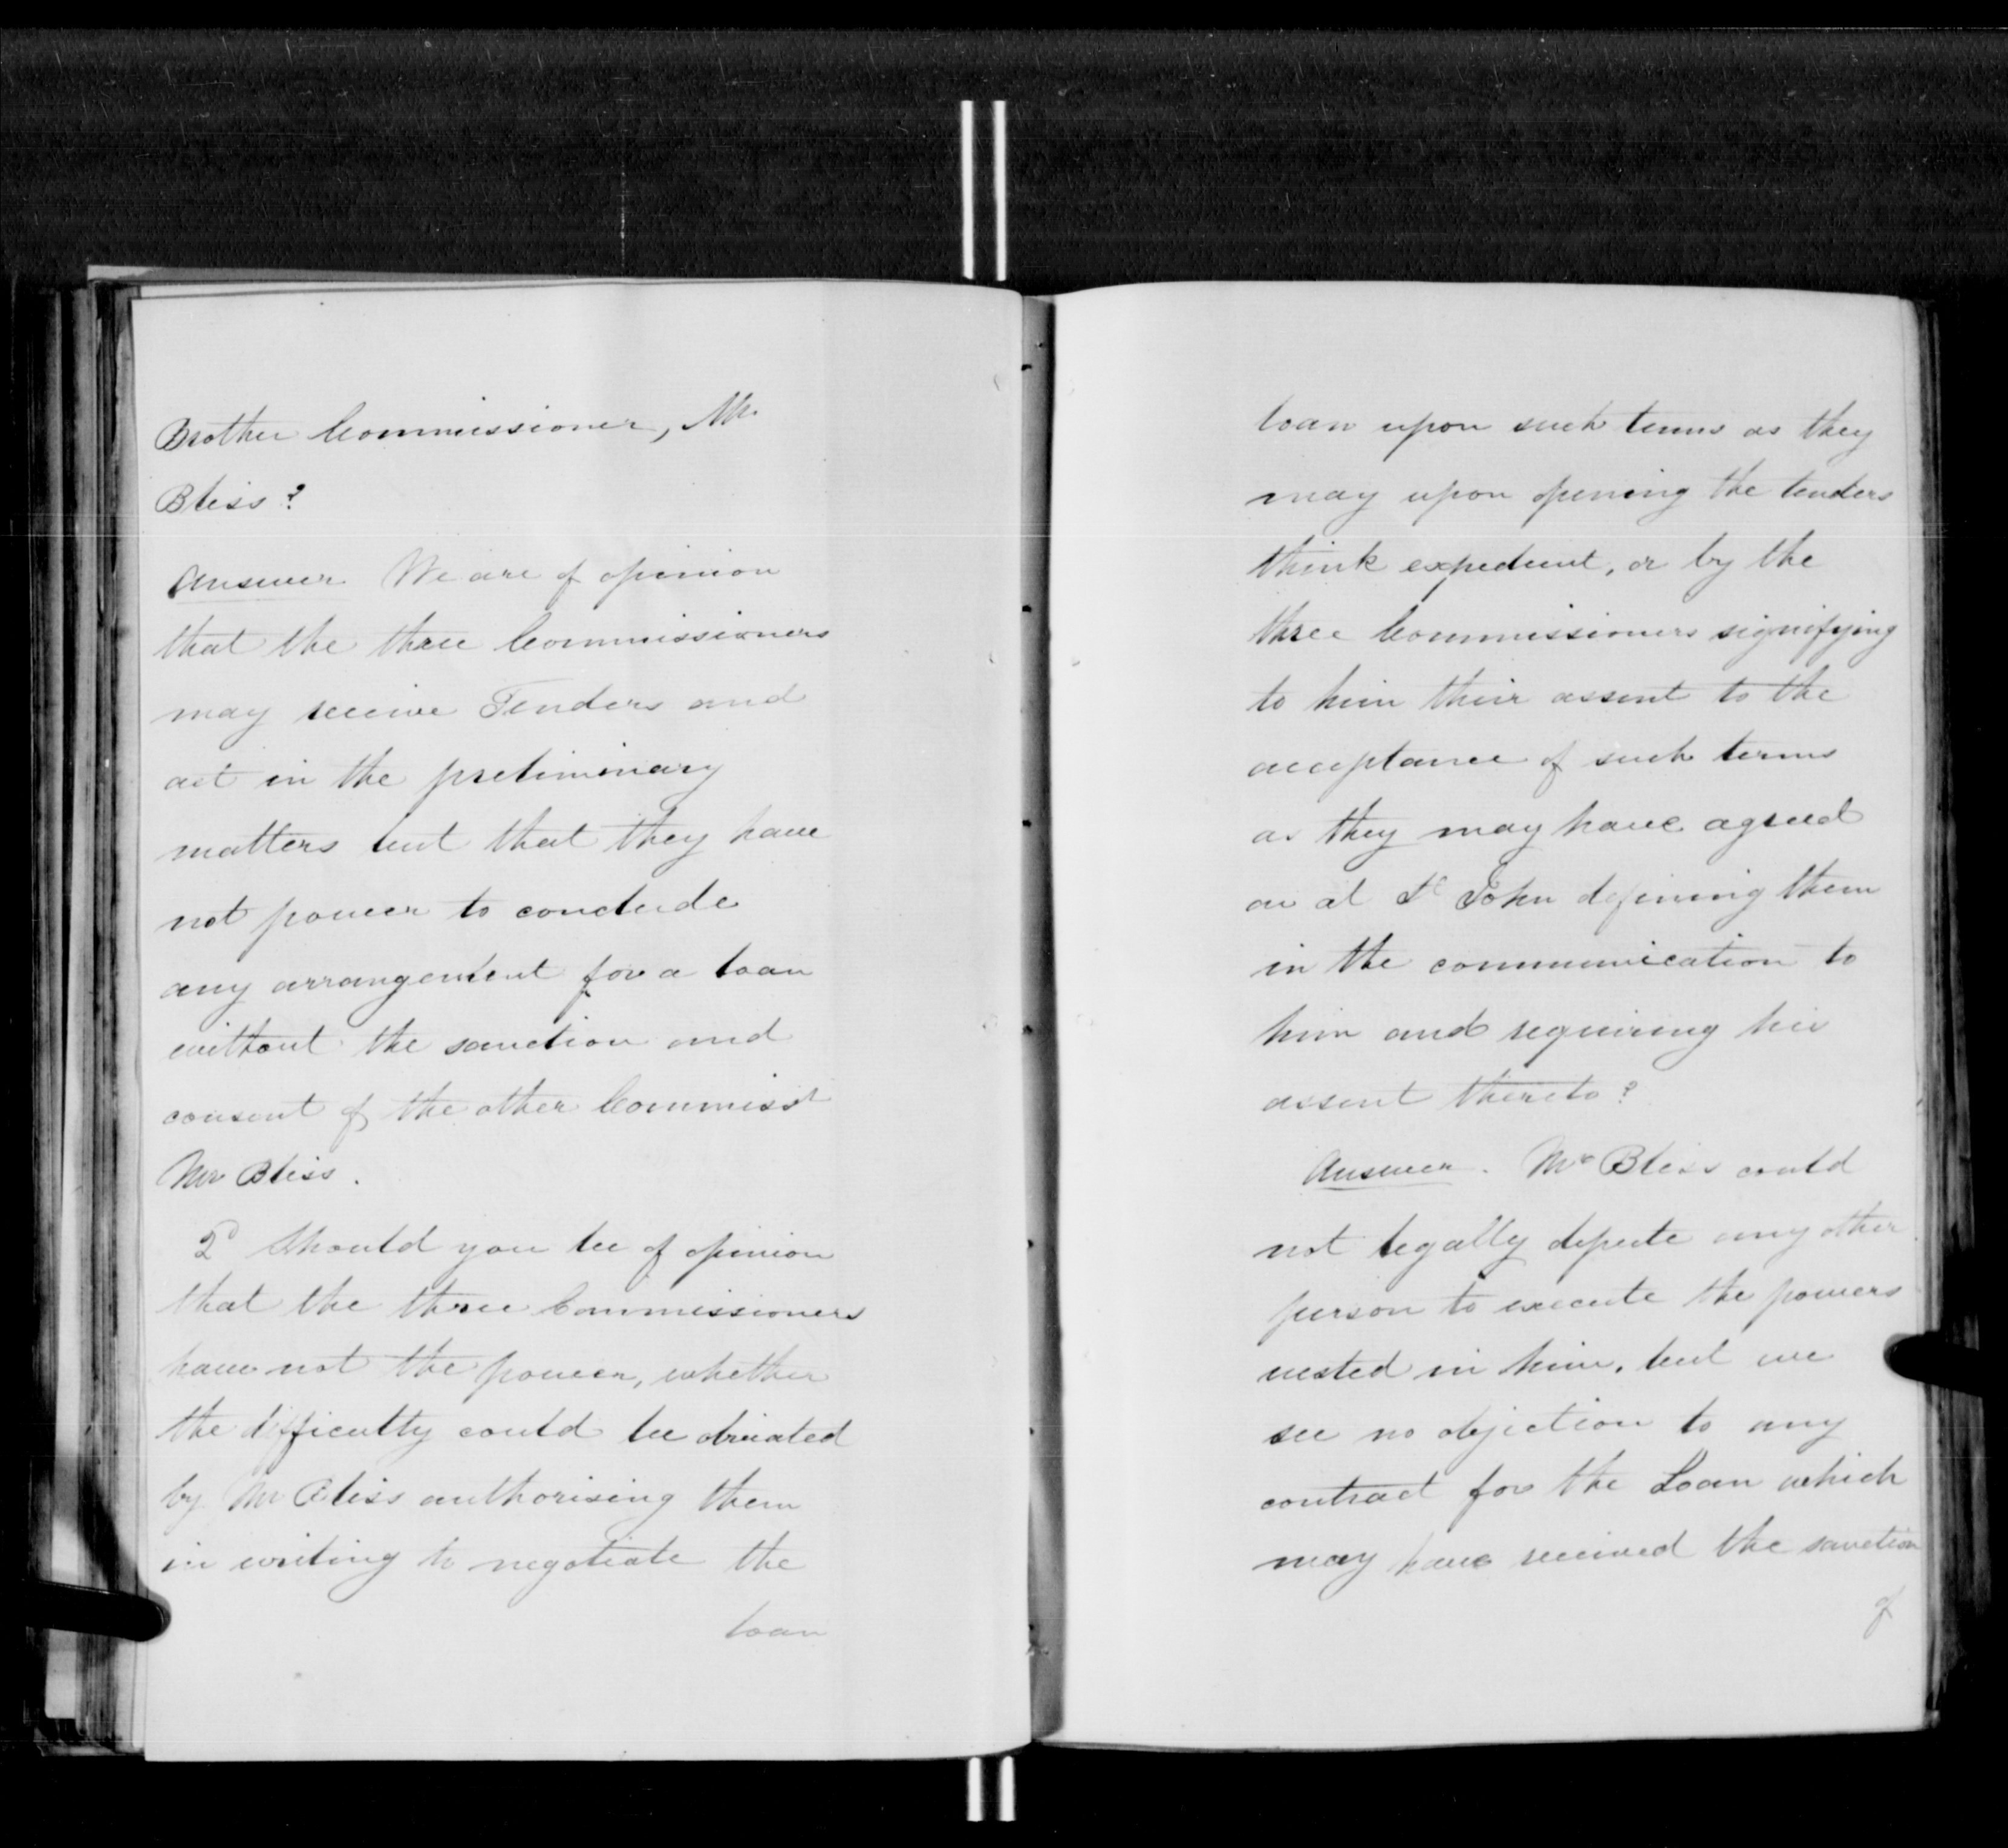 Brother Commissioner, Mr.
Bliss?
Answer We are of opinion
that the three Commissioners
may receive Tenders and
act in the preliminary
matters but that they have
not power to conclude
any arrangement for a loan
without the sanction and
consent of the other Commissr
Mr Bliss.
2d Should you be of opinion
that the three Commissioners
have not the power, whether
the difficulty could be obviated
by Mr Bliss authorising them
in writing to negotiate the
loan
loan upon such terms as they
may upon opening the tenders
think expedient, or by the
three Commissioners signifying
to him their assent to the
acceptance of such terms
as they may have agreed
on at St John defining them
in the communication to
him and requiring his
assent thereto?
Answer. Mr Bliss could
not legally depute any other
person to execute the powers
vested in him, but we
see no objection to any
contract for the Loan which
may have received the sanction
of